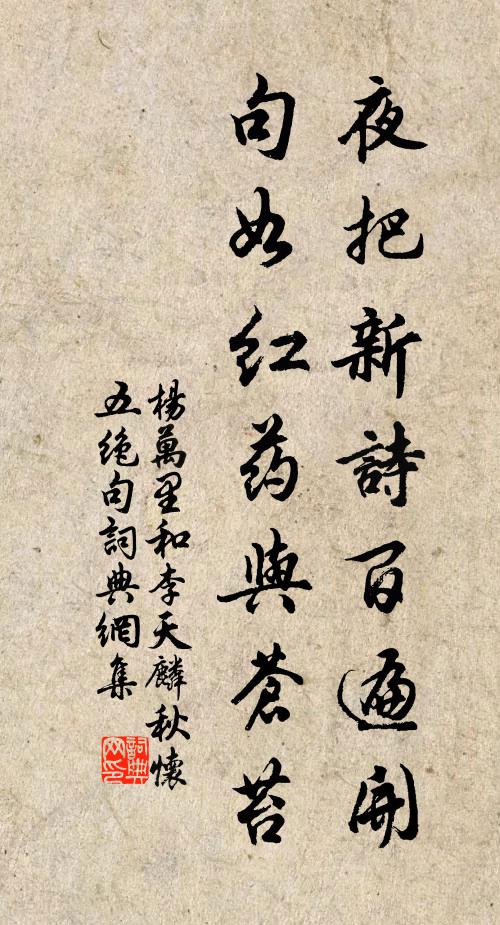 夜把新詩百遍開
句如紅药與蒼苔
楊萬里和李天麟秋懷
五绝句詞典網集
詞典
网印